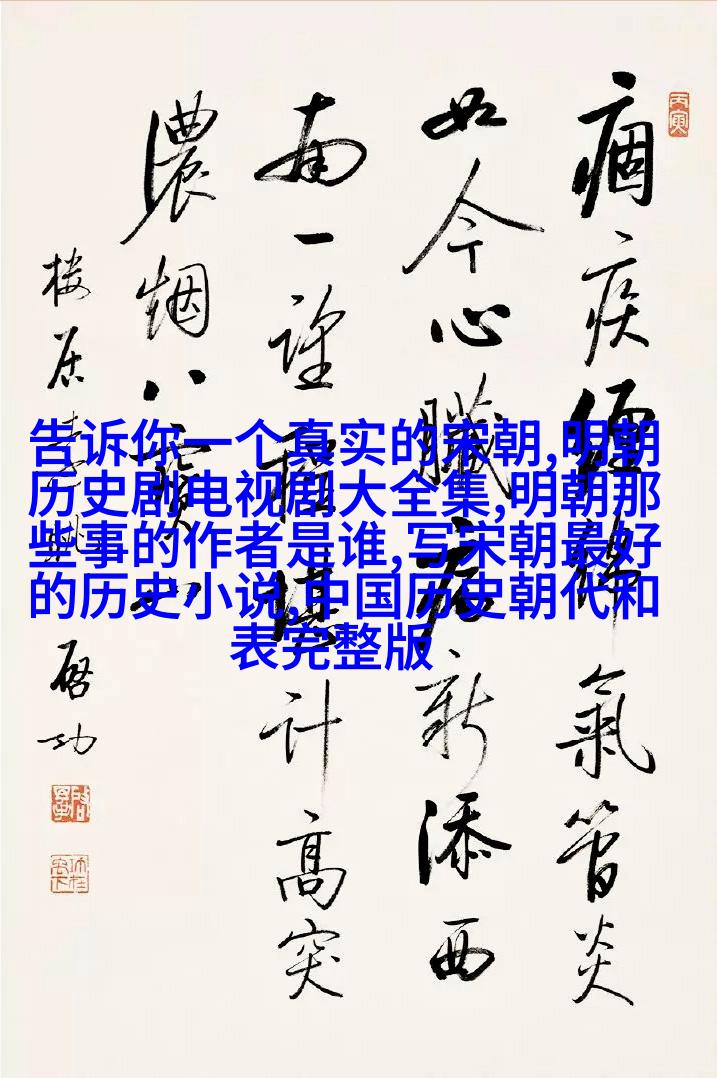 丙寅
痼疾纏綿氣管炎
如今心臟病新添西
南一望程堪計高突
濃烟八寶山
楼居眺 啓功
告诉你一个真实的宋朝,明朝
历史剧电视剧大全集,明朝那
些事的作者是谁,写宋朝最好
的历史小说,中国历史朝代和
表完整版